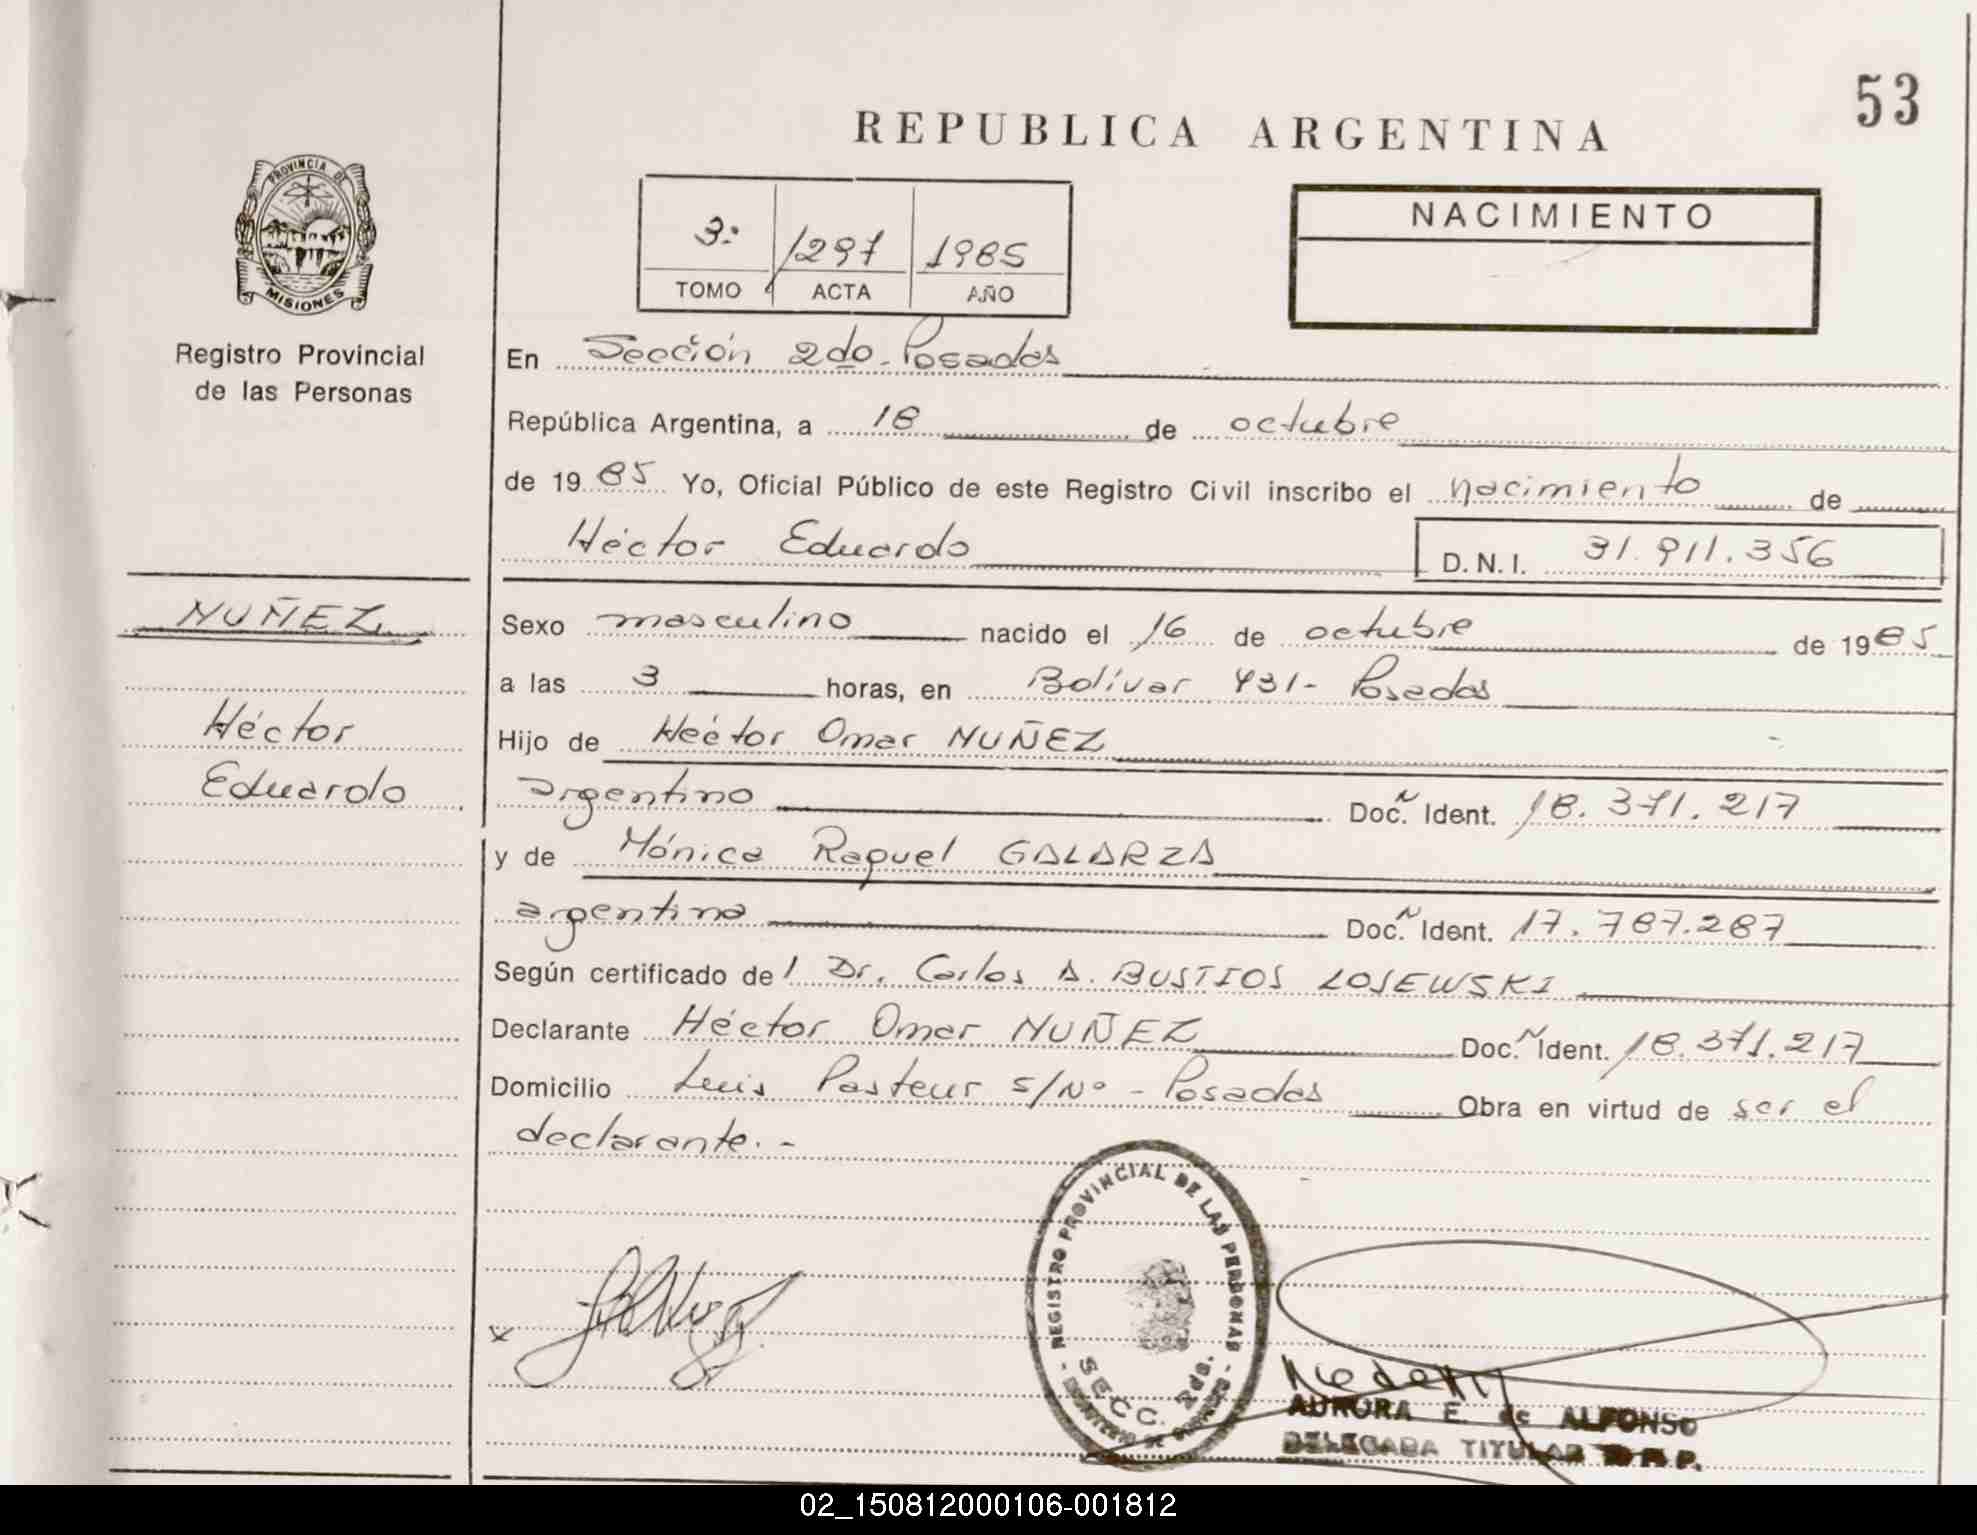 53
REPUBLICA ARGENTINA
PROVINCIA DE
MISIONES
Registro Provincial
de las Personas
3º 1297 1985
TOMO ACTA AÑO
NACIMIENTO
En Sección 2da - Posadas
República Argentina, a 18 de octubre
de 1985 Yo, Oficial Público de este Registro Civil inscribo el nacimiento de
Héctor Eduardo D.N.I. 31.911.356
NUÑEZ
Héctor
Eduardo
Sexo masculino nacido el 16 de octubre de 1985
a las 3 horas, en Bolívar 431 - Posadas
Hijo de Héctor Omar NUÑEZ
argentino Doc. Ident. 18.371.217
y de Mónica Raquel GALARZA
argentina Doc. Ident. 17.787.287
Según certificado del Dr. Carlos A. BUSTIOS LOSEWSKI
Declarante Héctor Omar NUÑEZ Doc. Ident. 18.371.217
Domicilio Luis Pasteur s/Nº - Posadas Obra en virtud de ser el
declarante. -
REGISTRO PROVINCIAL DE LAS PERSONAS
SECC. 2da.
MINISTERIO DE GOBIERNO
AURORA E. de ALFONSO
DELEGADA TITULAR R.P.P.
02_150812000106-001812